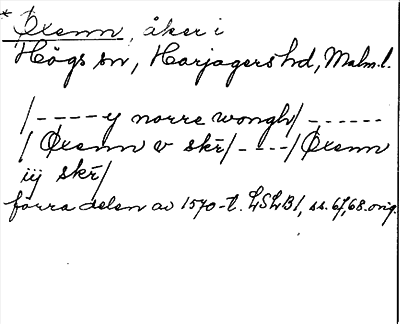 * Øxenn, åker i
Högs sn, Harjagers hd, Malm.l.
/----y norre wongh/------
/Øxenn v skr̄/----/Øxenn
iij skr̄/
förra delen av 1570-t. LSLB1, ss. 67,68. orig.